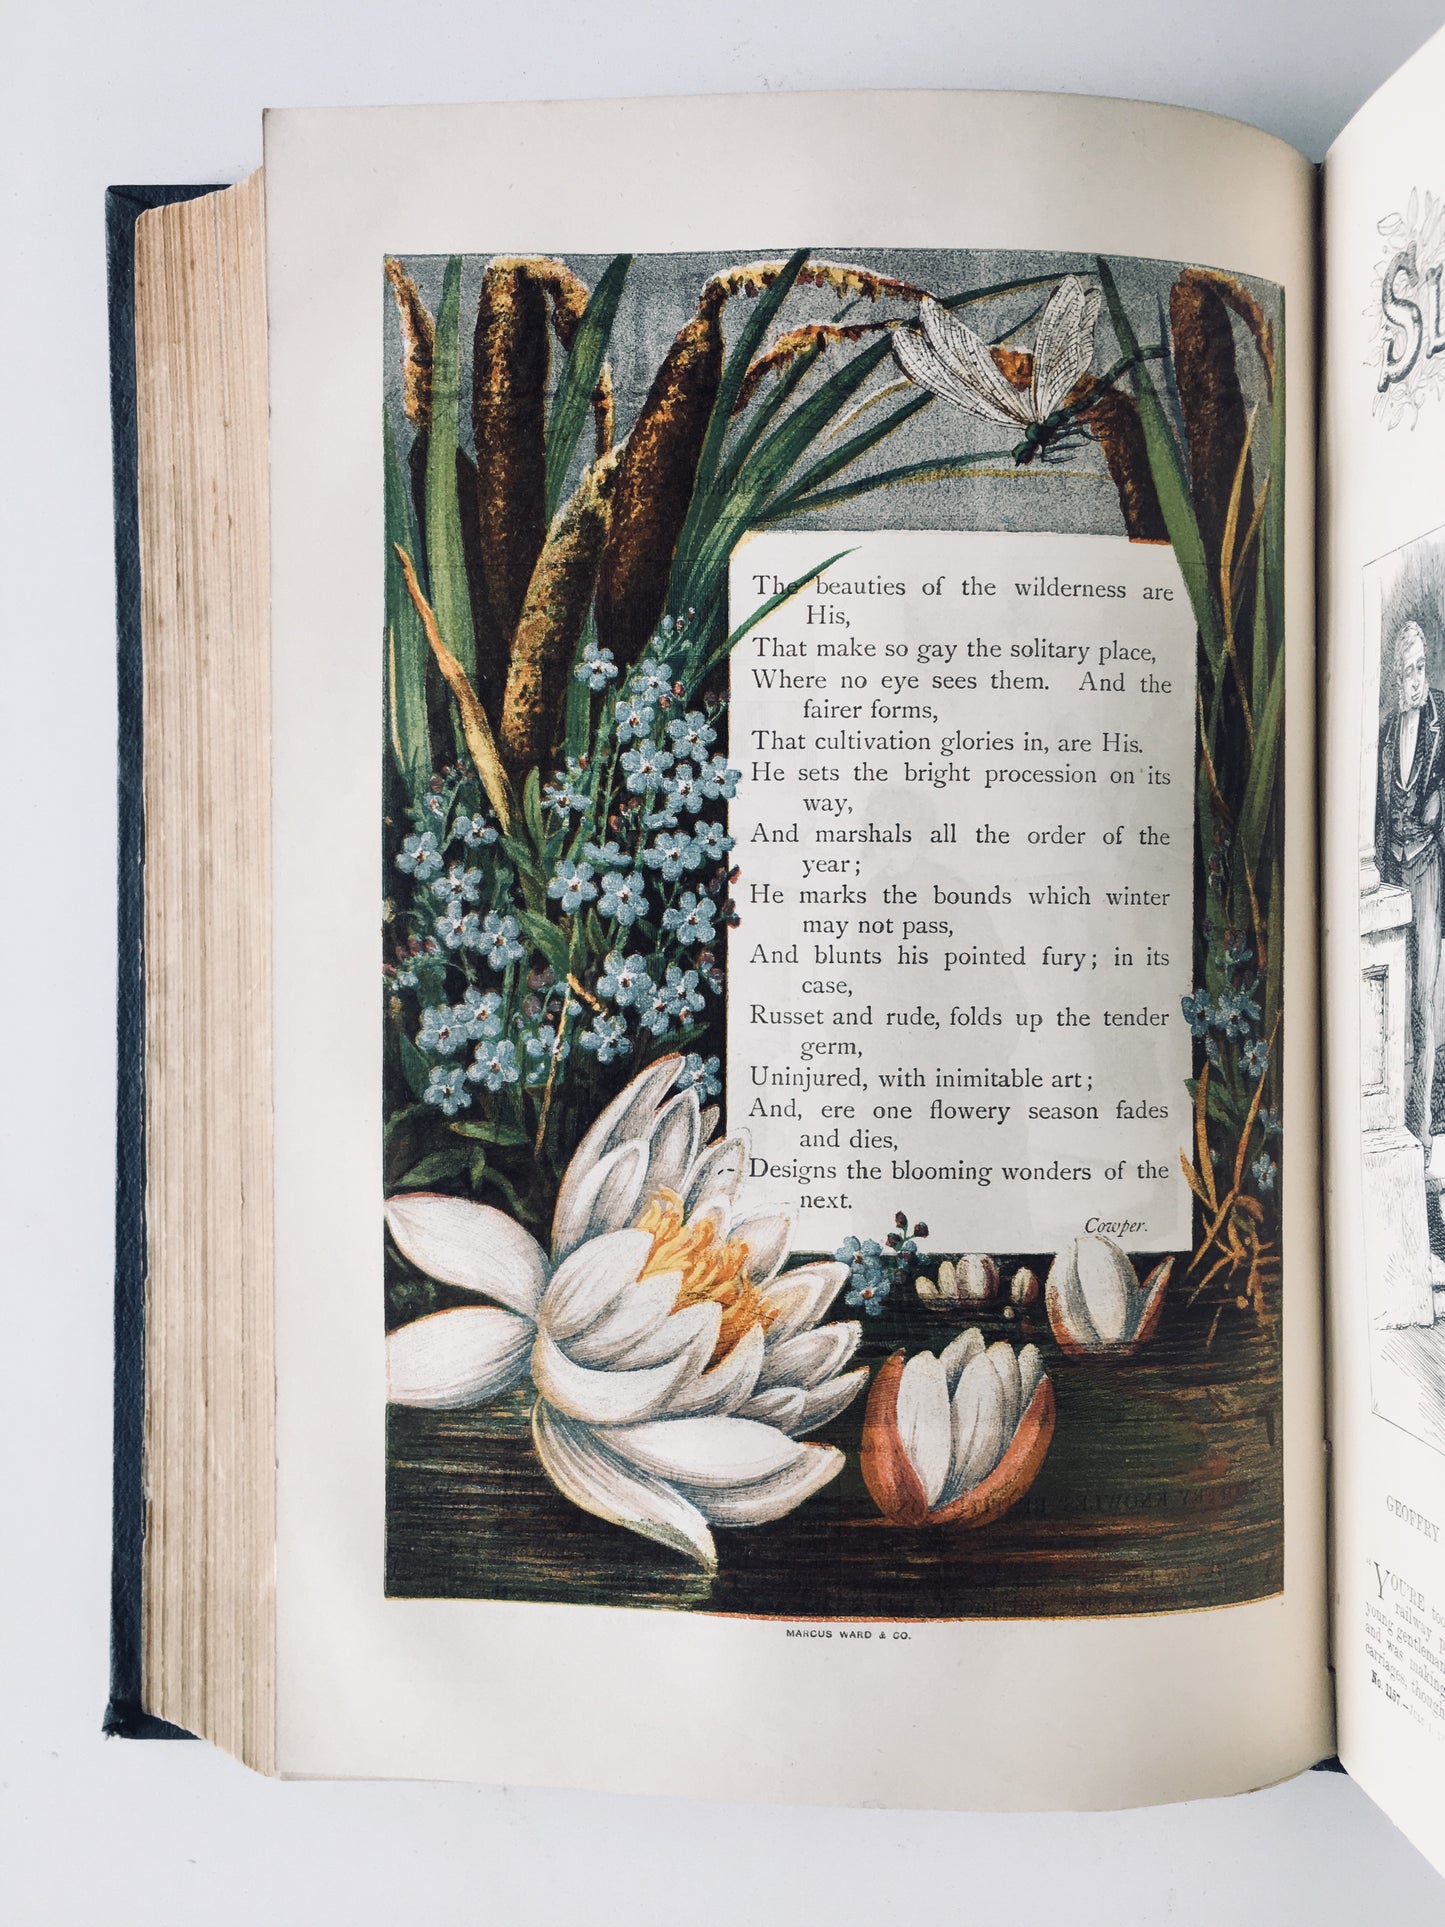 The beauties of the wilderness are
His,
That make so gay the solitary place,
Where no eye sees them. And the
fairer forms,
That cultivation glories in, are His.
He sets the bright procession on its
way,
And marshals all the order of the
year;
He marks the bounds which winter
may not pass,
And blunts his pointed fury; in its
case,
Russet and rude, folds up the tender
germ,
Uninjured, with inimitable art;
And, ere one flowery season fades
and dies,
Designs the blooming wonders of the
next.
Cowper.
MARCUS WARD & CO.
GEOFFRY
"YOU'RE
railway
young gentleman
and was making
carriages, though
No. 1157.